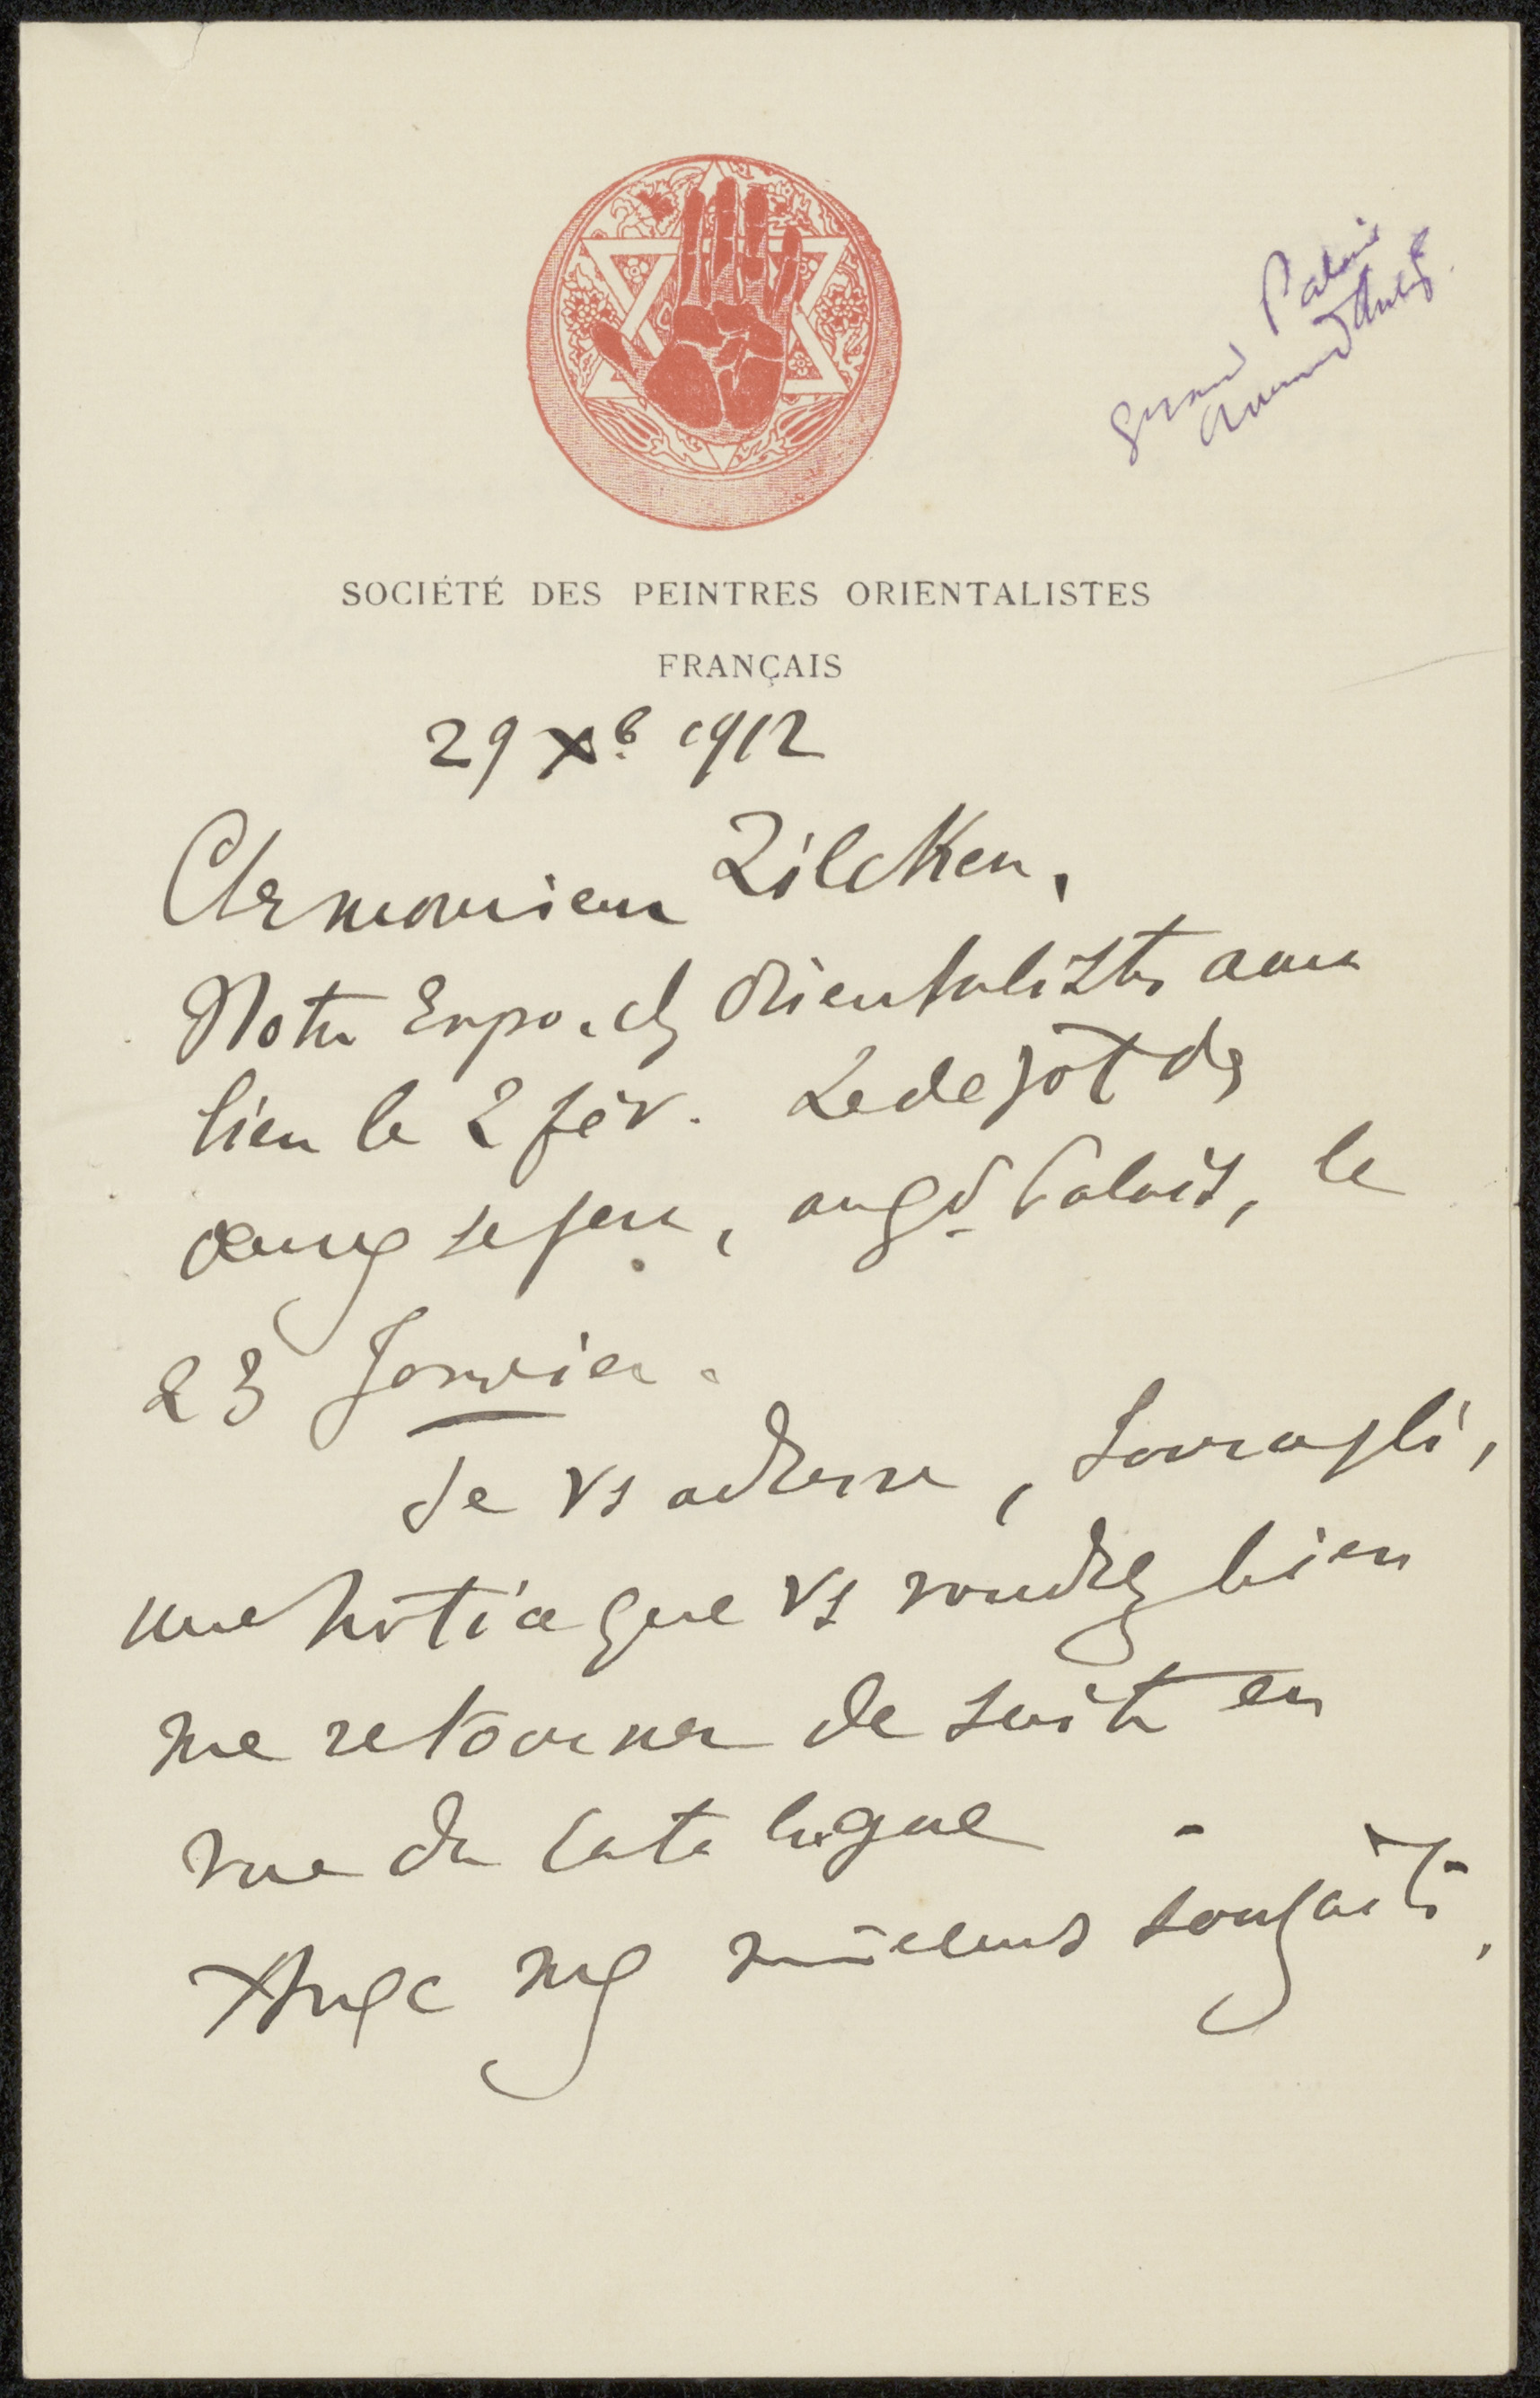 Grand Palais
Avenue d'Antin
SOCIÉTÉ DES PEINTRES ORIENTALISTES
FRANÇAIS
29 Xb 1912
Cher monsieur Zilcken,
Notre Expo. des Orientalistes aura
lieu le 2 fév. Le depôt des
œuvres se fera, au gd Palais, le
23 Janvier.
Je vs adresse, sous ce pli,
une notice que vs voudrez bien
me retourner de suite en
vue du Catalogue -
Avec mes meilleurs souhaits,